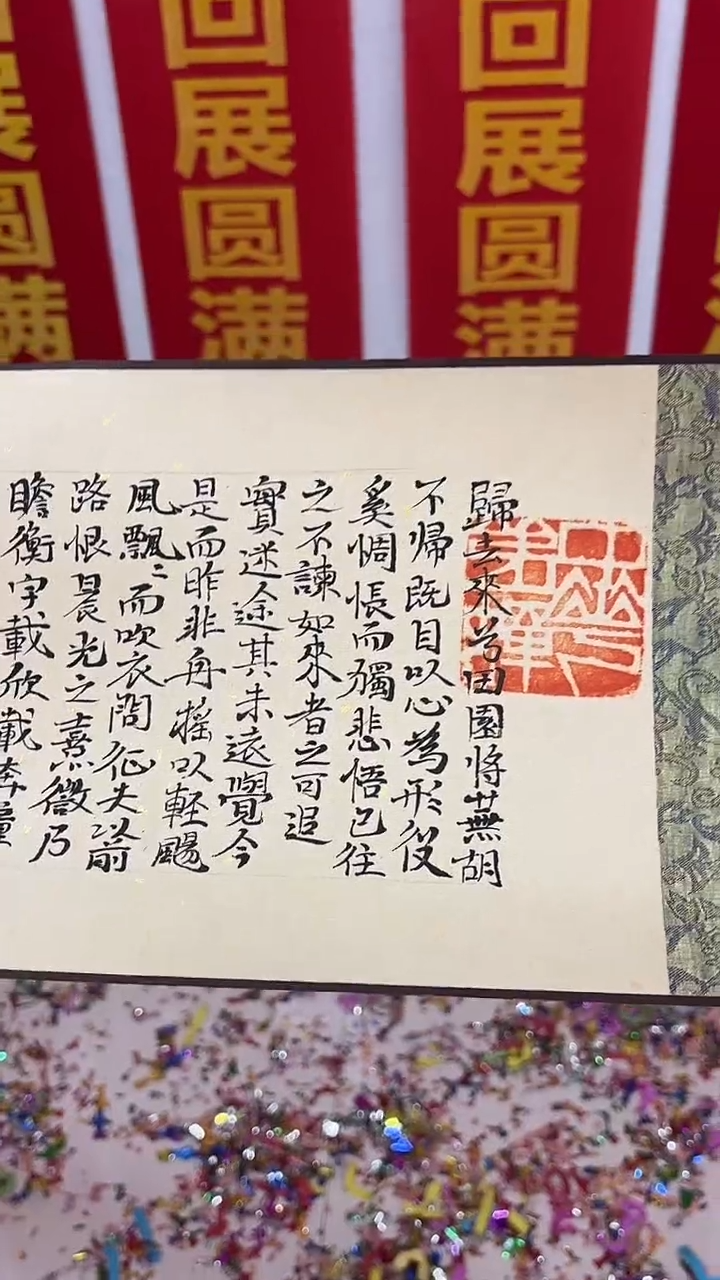 回展圆满
回展圆满
展圆满
歸去來兮田園將蕪胡
不帰既自以心為形役
奚惆悵而獨悲悟已往
之不諫如來者之可追
實迷途其未遠覺今
是而昨非舟搖以輕颺
風飄〻而吹衣問征夫以前
路恨晨光之熹微乃
瞻衡宇載欣載奔僮